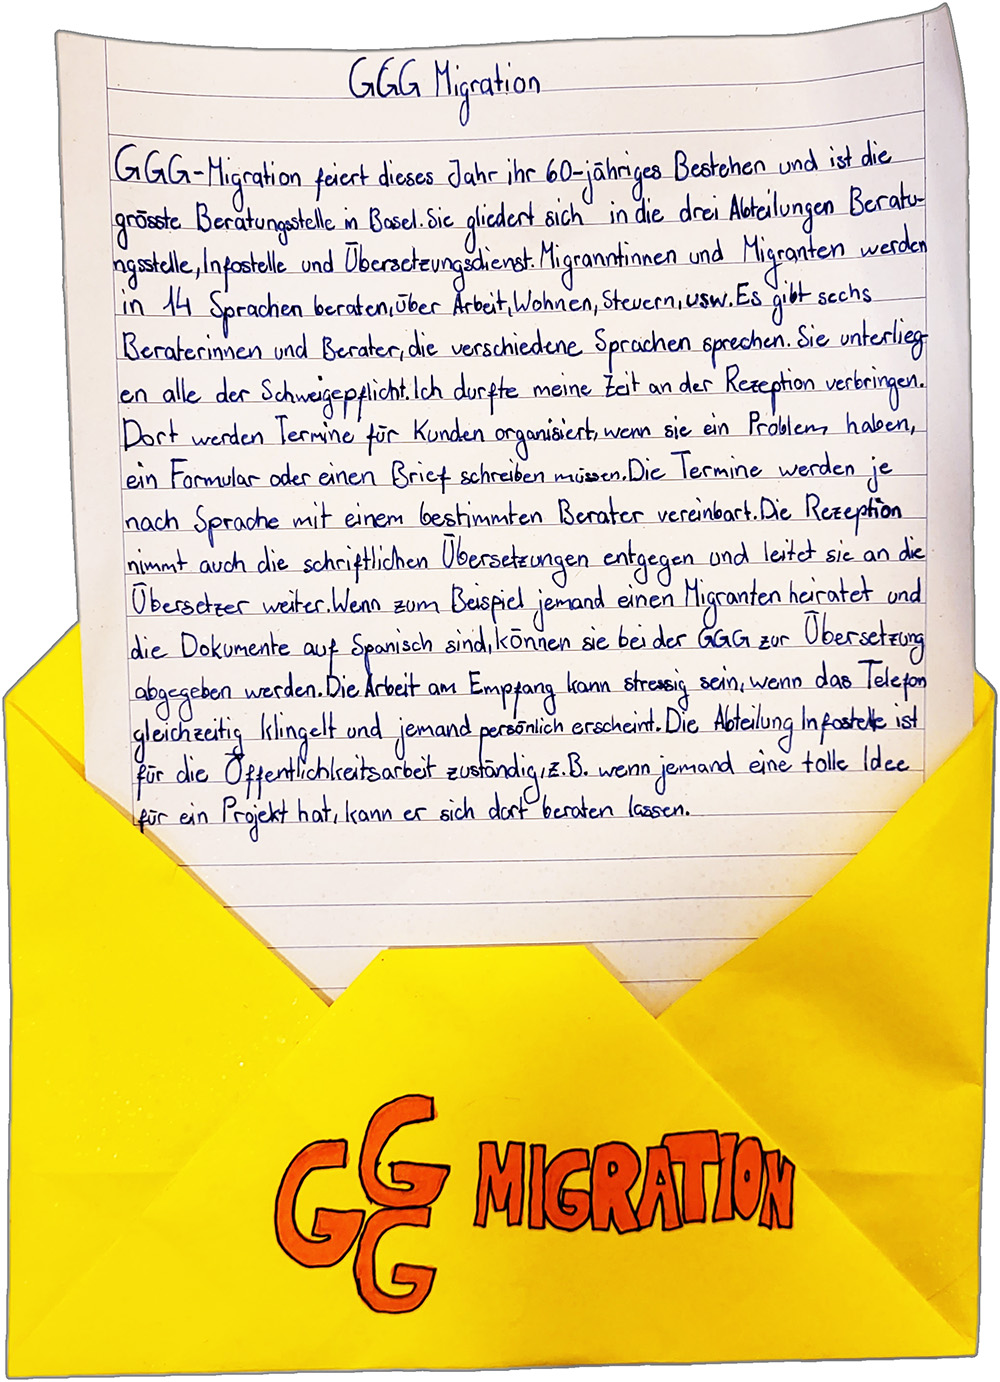 GGG Migration
GGG-Migration feiert dieses Jahr ihr 60-jähriges Bestehen und ist die
grösste Beratungsstelle in Basel. Sie gliedert sich in die drei Abteilungen Beratu-
ngsstelle, Infostelle und Übersetzungsdienst. Migranntinnen und Migranten werden
in 14 Sprachen beraten, über Arbeit, Wohnen, Steuern, usw. Es gibt sechs
Beraterinnen und Berater, die verschiedene Sprachen sprechen. Sie unterlieg-
en alle der Schweigepflicht. Ich durfte meine Zeit an der Rezeption verbringen.
Dort werden Termine für Kunden organisiert, wenn sie ein Problem haben,
ein Formular oder einen Brief schreiben müssen. Die Termine werden je
nach Sprache mit einem bestimmten Berater vereinbart. Die Rezeption
nimmt auch die schriftlichen Übersetzungen entgegen und leitet sie an die
Übersetzer weiter. Wenn zum Beispiel jemand einen Migranten heiratet und
die Dokumente auf Spanisch sind, können sie bei der GGG zur Übersetzung
abgegeben werden. Die Arbeit am Empfang kann stressig sein, wenn das Telefon
gleichzeitig klingelt und jemand persönlich erscheint. Die Abteilung Infostelle ist
für die Öffentlichkeitsarbeit zuständig, z.B. wenn jemand eine tolle Idee
für ein Projekt hat, kann er sich dort beraten lassen.
GGG MIGRATION